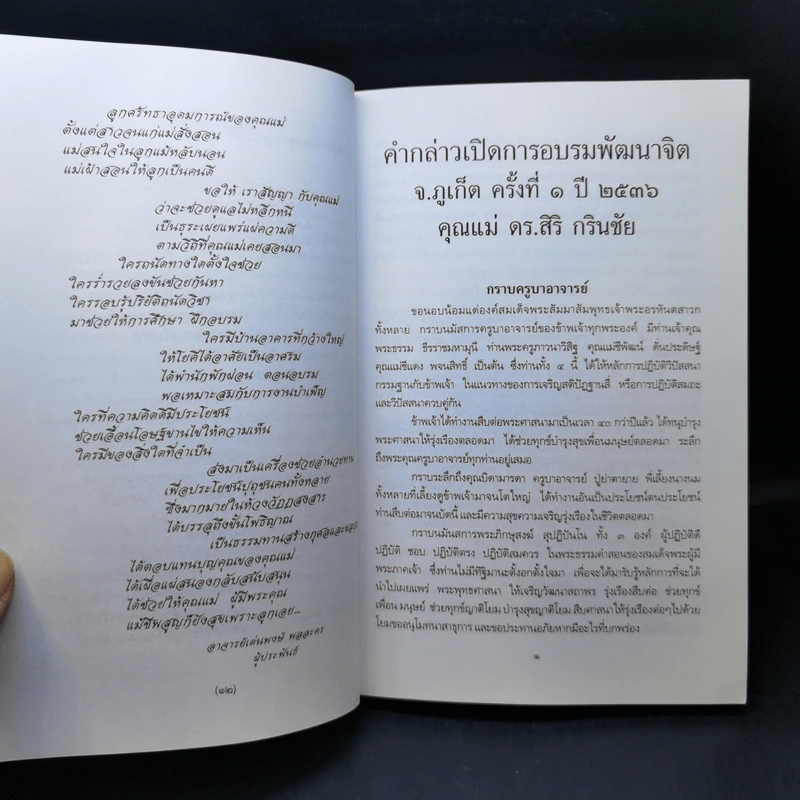 ลูกศรัทธาอุดมการณ์ของคุณแม่
ตั้งแต่สาวจนแก่แม่สั่งสอน
แม่สนใจในลูกแม้หลับนอน
แม่เฝ้าสอนให้ลูกเป็นคนดี
ขอให้ เราสัญญา กับคุณแม่
ว่าจะช่วยดูแลไม่หลีกหนี
เป็นธุระเผยแพร่แผ่ความดี
ตามวิธีที่คุณแม่เคยสอนมา
ใครถนัดทางใดตั้งใจช่วย
ใครร่ำรวยลงขันช่วยกันหา
ใครรอบรู้ปริยัติถนัดวิชา
มาช่วยให้การศึกษา ฝึกอบรม
ใครมีบ้านอาคารที่กว้างใหญ่
ให้โยคีได้อาศัยเป็นอาศรม
ได้พำนักพักผ่อน ตอนอบรม
พอเหมาะสมกับการงานบำเพ็ญ
ใครที่ความคิดดีมีประโยชน์
ช่วยเอื้อนโอษฐ์ขานไขให้ความเห็น
ใครมีของสิ่งใดที่จำเป็น
ส่งมาเป็นเครื่องช่วยอำนวยทาน
เพื่อประโยชน์ปุถุชนคนทั้งหลาย
ซึ่งมากมายในห้วงวัฏฏสงสาร
ได้บรรลุถึงขั้นโพธิญาณ
เป็นธรรมทานสร้างกุศลและ
ได้ตอบแทนบุญคุณของคุณแม่
ได้เผื่อแผ่สนองกลับสนับสนุน
ได้ช่วยให้คุณแม่ ผู้มีพระคุณ
แม้ชีพสูญก็ยังสุขเพราะลูกเอย...
อาจารย์เด่นพงษ์ พลละคร
ผู้ประพันธ์
(๑๒)
คำกล่าวเปิดการอบรมพัฒนาจิต
จ.ภูเก็ต ครั้งที่ ๑ ปี ๒๕๓๖
คุณแม่ ดร.สิริ กรินชัย
กราบครูบาอาจารย์
ขอนอบน้อมแด่องค์สมเด็จพระสัมมาสัมพุทธเจ้าพระอรหันตสาวก
ทั้งหลาย กราบนมัสการครูบาอาจารย์ของข้าพเจ้าทุกพระองค์ มีท่านเจ้าคุณ
พระธรรม ธีรราชมหามุนี ท่านพระครูภาวนาวิสิฐ คุณแม่ชีพัฒน์ ตั่นประดิษฐ์
คุณแม่ชีแดง พจนสิทธิ์ เป็นต้น ซึ่งท่านทั้ง ๔ นี้ ได้ให้หลักการปฏิบัติวิปัสสนา
กรรมฐานกับข้าพเจ้า ในแนวทางของการเจริญสติปัฏฐานสี่ หรือการปฏิบัติสมถะ
และวิปัสสนาควบคู่กัน
ข้าพเจ้าได้ทำงานสืบต่อพระศาสนามาเป็นเวลา ๔๐ กว่าปีแล้ว ได้ทนุบำรุง
พระศาสนาให้รุ่งเรืองตลอดมา ได้ช่วยทุกข์บำรุงสุขเพื่อนมนุษย์ตลอดมา ระลึก
ถึงพระคุณครูบาอาจารย์ทุกท่านอยู่เสมอ
กราบระลึกถึงคุณบิดามารดา ครูบาอาจารย์ ปู่ย่าตายาย พี่เลี้ยงนางนม
ทั้งหลายที่เลี้ยงดูข้าพเจ้ามาจนโตใหญ่ ได้ทำงานอันเป็นประโยชน์ตนประโยชน์
ท่านสืบต่อมาจนบัดนี้ และมีความสุขความเจริญรุ่งเรืองในชีวิตตลอดมา
กราบนมัสการพระภิกษุสงฆ์ สุปฏิปันโน ทั้ง ๓ องค์ ผู้ปฏิบัติดี
ปฏิบัติ ชอบ ปฏิบัติตรง ปฏิบัติสมควร ในพระธรรมคำสอนของสมเด็จพระผู้มี
พระภาคเจ้า ซึ่งท่านไม่มีทิฐิมานะตั้งอกตั้งใจมา เพื่อจะได้มารับรู้หลักการที่จะได้
นำไปเผยแพร่ พระพุทธศาสนา ให้เจริญวัฒนาสถาพร รุ่งเรืองสืบต่อ ช่วยทุกข์
เพื่อน มนุษย์ ช่วยทุกข์ญาติโยม บำรุงสุขญาติโยม สืบศาสนาให้รุ่งเรืองต่อๆไปด้วย
โยมขออนุโมทนาสาธุการ และขอประทานอภัยหากมีอะไรที่บกพร่อง
๑